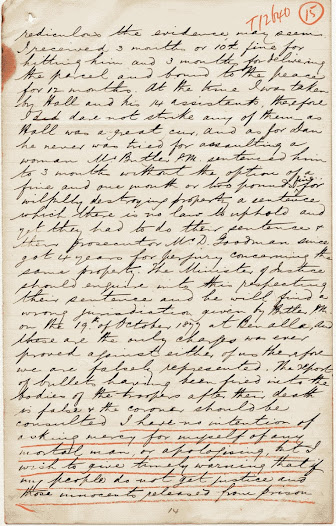 T/2640 15
rediculous the evidence may seem
I received 3 months or 10£ fine for
hitting him and 3 months for delivering
the parcel and bound to the peace
for 12 months. At the time I was taken
by Hall and his 14 assistants, therefore
I dare not strike any of them as
Hall was a great cur, and as for dan
he never was tried for assaulting a
woman Mr Butler P.M. sentenced him
to 3 months without the option of a
fine and one month or two pounds fine for
wilfully destroying property a sentence
which there is no law to uphold and
yet they had to do their sentence &
their prosecutor Mr D. Goodman since
got 4 years for perjury concerning the
same property. The Minister of Justice
should enquire into this respecting
their sentence and he will find a
wrong jurisdiction given by Butler P.M.
on the 19th of October 1877 at Benalla, and
those are the only charges was ever
proved against either of us therefore
we are falsely represented. The report
of bullets having been fired into the
bodies of the troopers after their death
is false & the coroner should be
consulted I have no intention of
asking mercy for myself of any
mortal man, or apologising, but I
wish to give timely warning that if
my people do not get justice and
those innocents released from prison
14